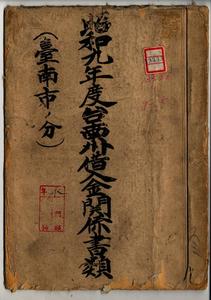 昭和九年度台西州借入金関係書類
(臺南市ノ分)
永
年